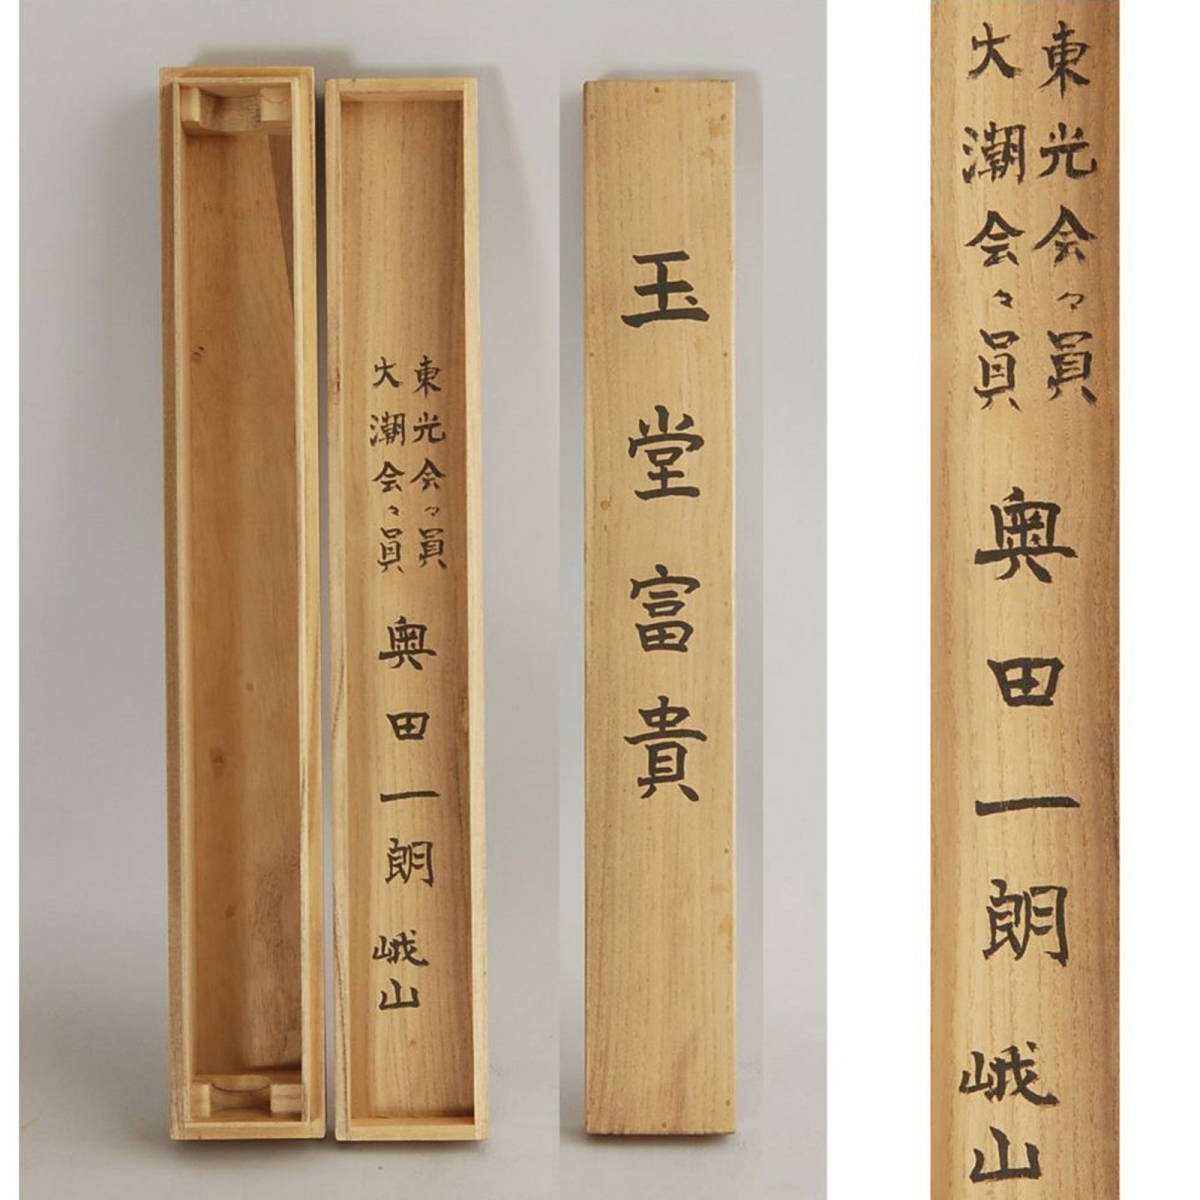 東光会々員
大潮会々員
奥田一朗 峨山
玉堂富貴
東光会々員
大潮会々員
奥田一朗 峨山